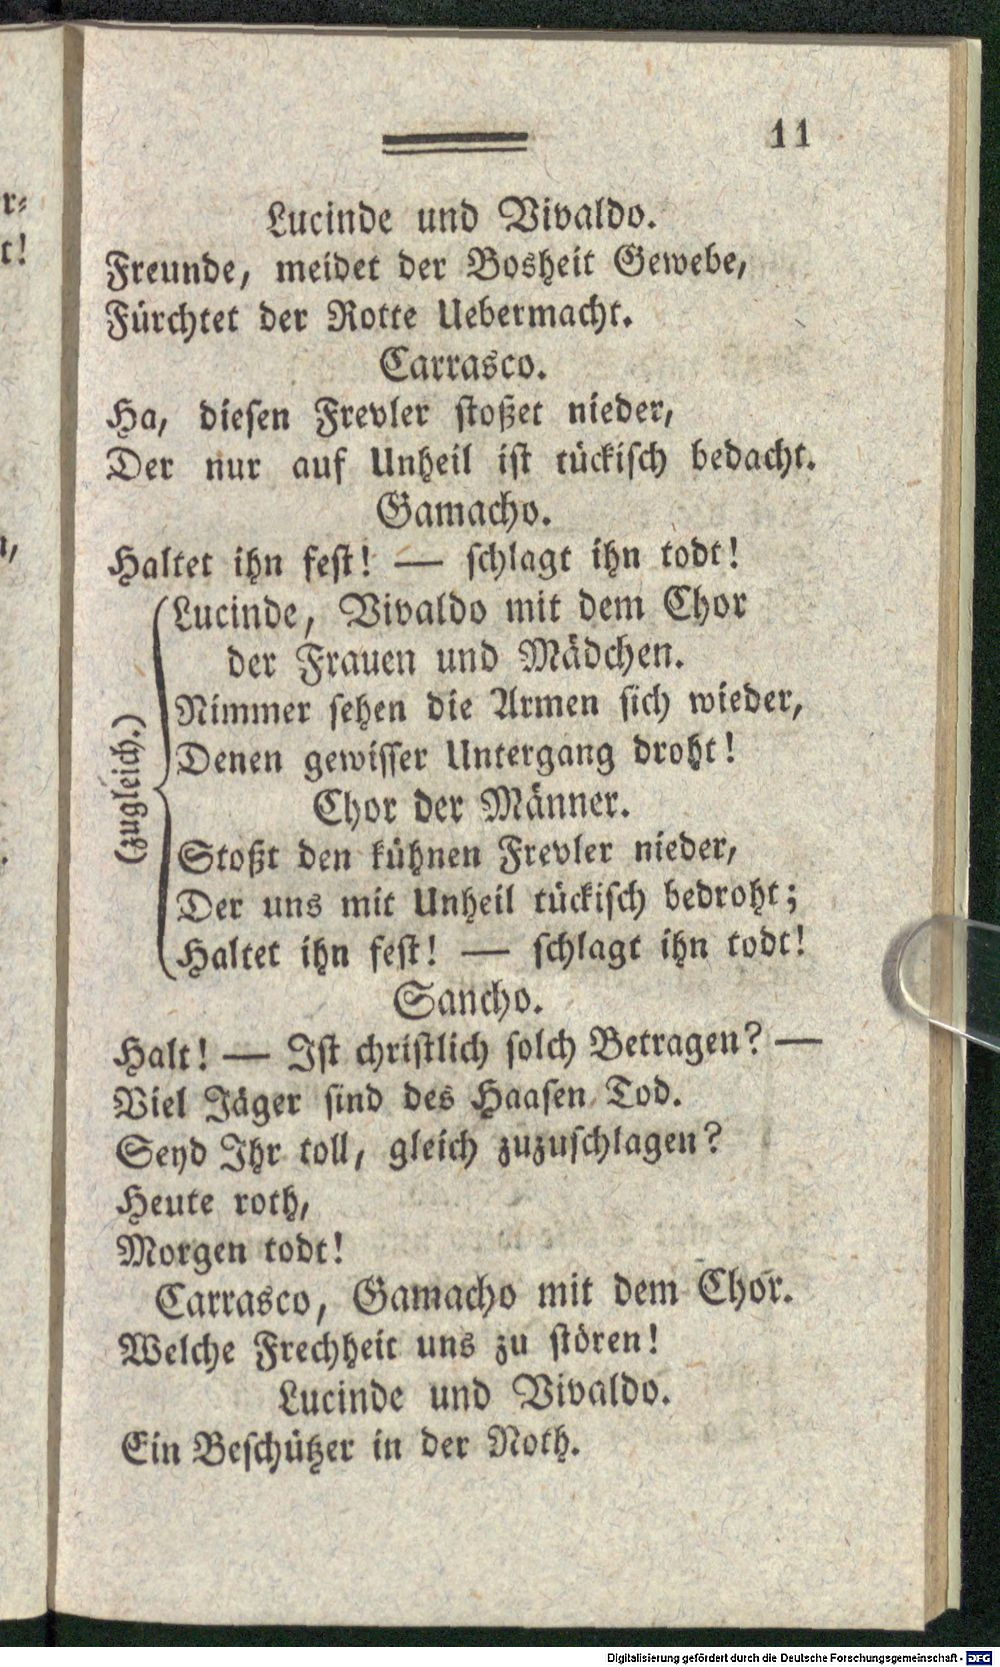 11
Lucinde und Vivaldo.
Freunde, meidet der Bosheit Gewebe,
Fürchtet der Rotte Uebermacht.
Carrasco.
Ha, diesen Frevler stoßet nieder,
Der nur auf Unheil ist tückisch bedacht.
Gamacho.
Haltet ihn fest! — schlagt ihn todt!
(zugleich.)
Lucinde, Vivaldo mit dem Chor
der Frauen und Mädchen.
Nimmer sehen die Armen sich wieder,
Denen gewisser Untergang droht!
Chor der Männer.
Stoßt den kühnen Frevler nieder,
Der uns mit Unheil tückisch bedroht;
Haltet ihn fest! — schlagt ihn todt!
Sancho.
Halt! — Ist christlich solch Betragen? —
Viel Jäger sind des Haasen Tod.
Seyd Ihr toll, gleich zuzuschlagen?
Heute roth,
Morgen todt!
Carrasco, Gamacho mit dem Chor.
Welche Frechheit uns zu stören!
Lucinde und Vivaldo.
Ein Beschützer in der Noth.
Digitalisierung gefördert durch die Deutsche Forschungsgemeinschaft - DFG